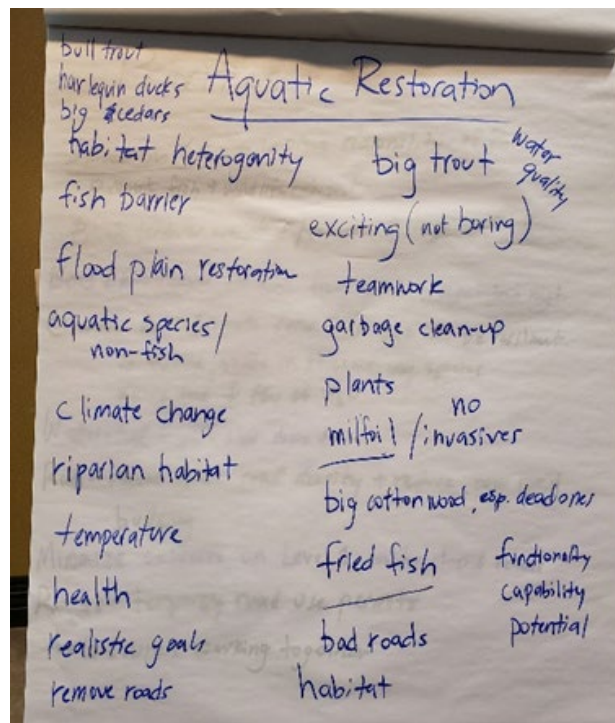 Aquatic Restoration
bull trout
harlequin ducks
big cedars
habitat heterogonity
fish barrier
flood plain restoration
aquatic species/
non-fish
climate change
riparian habitat
temperature
health
realistic goals
remove roads
big trout
water
quality
exciting (not boring)
teamwork
garbage clean-up
plants
no
milfoil / invasives
big cottonwood, esp. dead ones
fried fish
bad roads
habitat
functionality
capability
potential